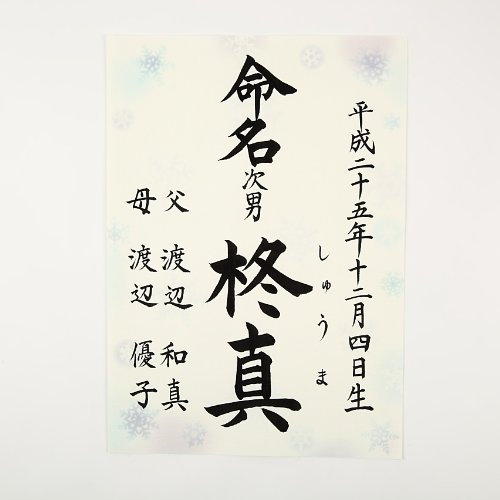 平成二十五年十二月四日生
しゅうま
命名 次男 柊真
父 渡辺 和真
母 渡辺 優子